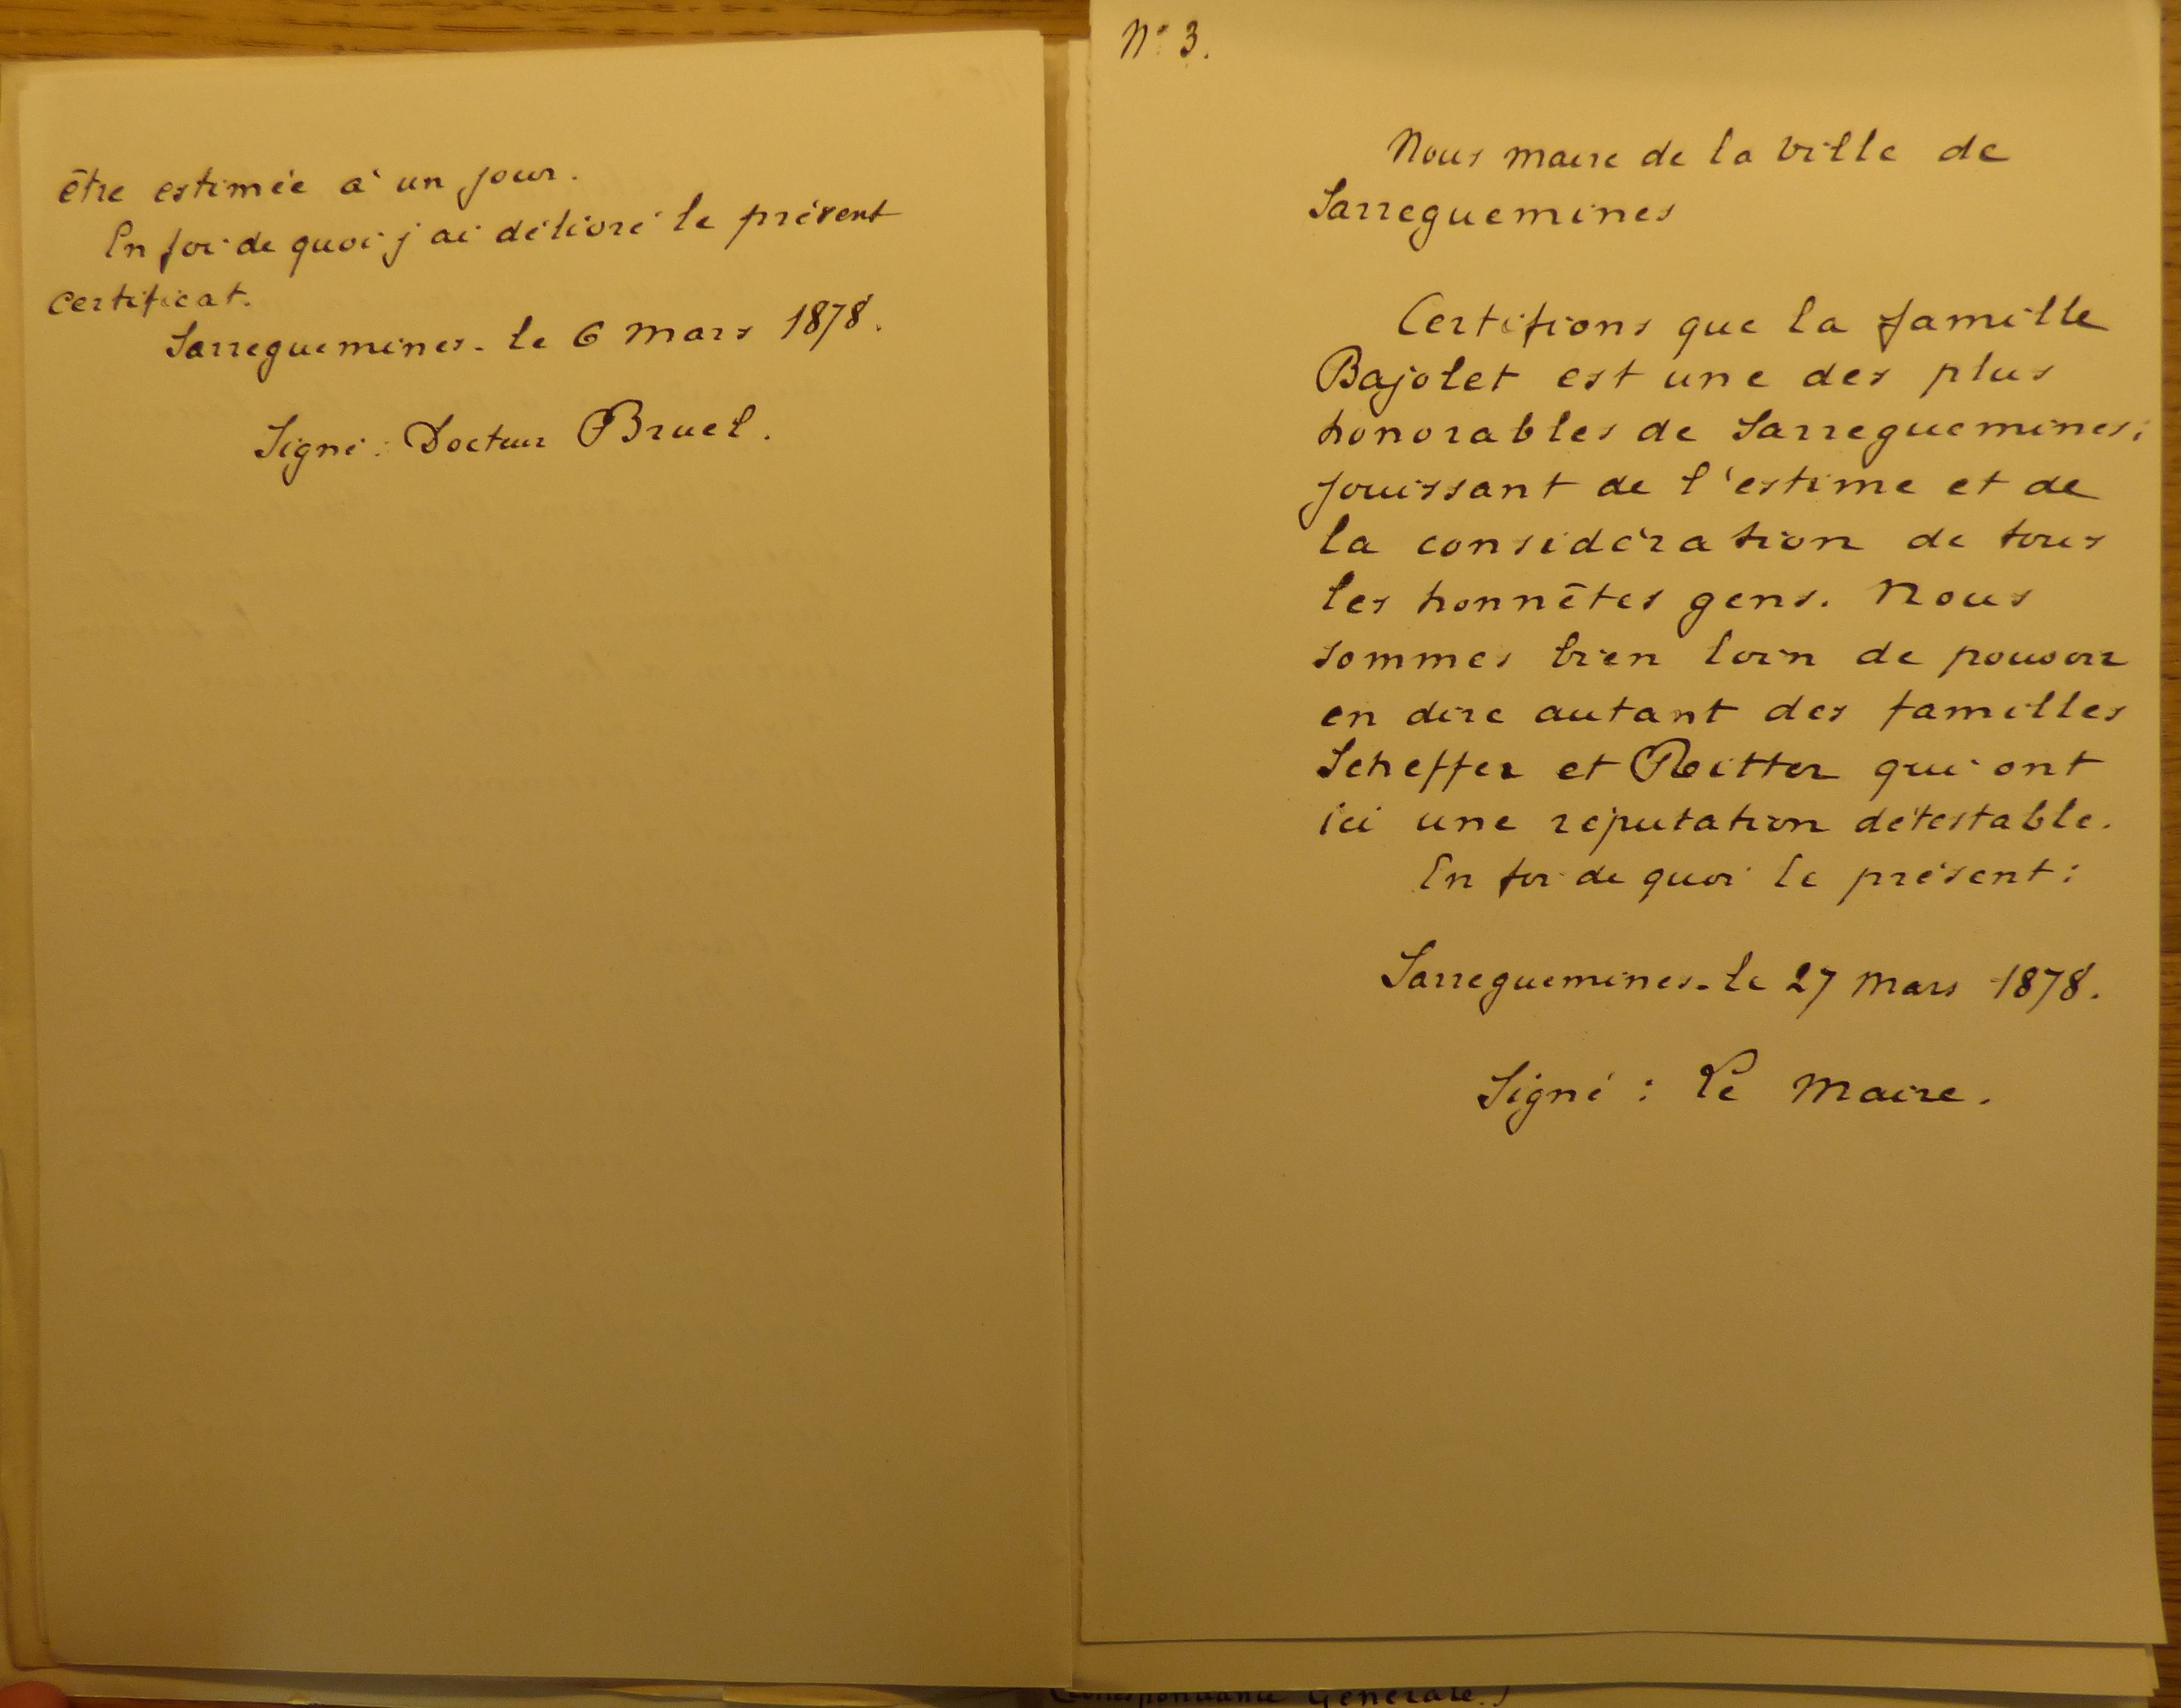 être estimée à un jour.
En foi de quoi j'ai délivré le présent
certificat.
Sarreguemines. le 6 mars 1878.
Signé : Docteur Bruel.
N° 3.
Nous maire de la ville de
Sarreguemines
Certifions que la famille
Bajolet est une des plus
honorables de Sarreguemines;
jouissant de l'estime et de
la considération de tous
les honnêtes gens. Nous
sommes bien loin de pouvoir
en dire autant des familles
Scheffer et Reitter qui ont
ici une réputation détestable.
En foi de quoi le présent :
Sarreguemines. le 27 mars 1878.
Signé : Le Maire.
Correspondance Générale.)